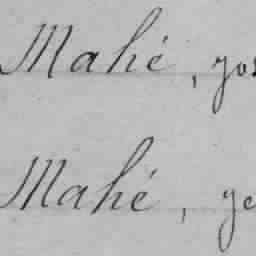 Mahé, yos
Mahé, ye